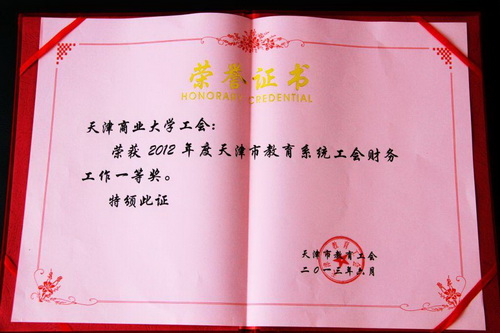 荣誉证书
HONORARY CREDENTIAL
天津商业大学工会：
荣获 2012 年度天津市教育系统工会财务
工作一等奖。
特颁此证
天津市教育工会
二〇一三年六月